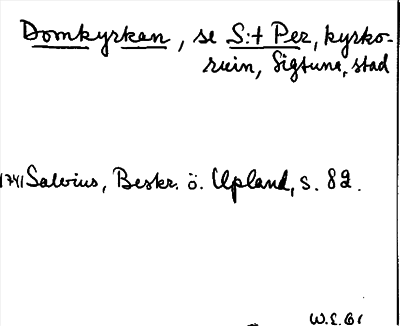 Domkyrkan, se S:t Per, kyrko-
ruin, Sigtuna, stad
1741 Salvius, Beskr. ö. Upland, s. 82.